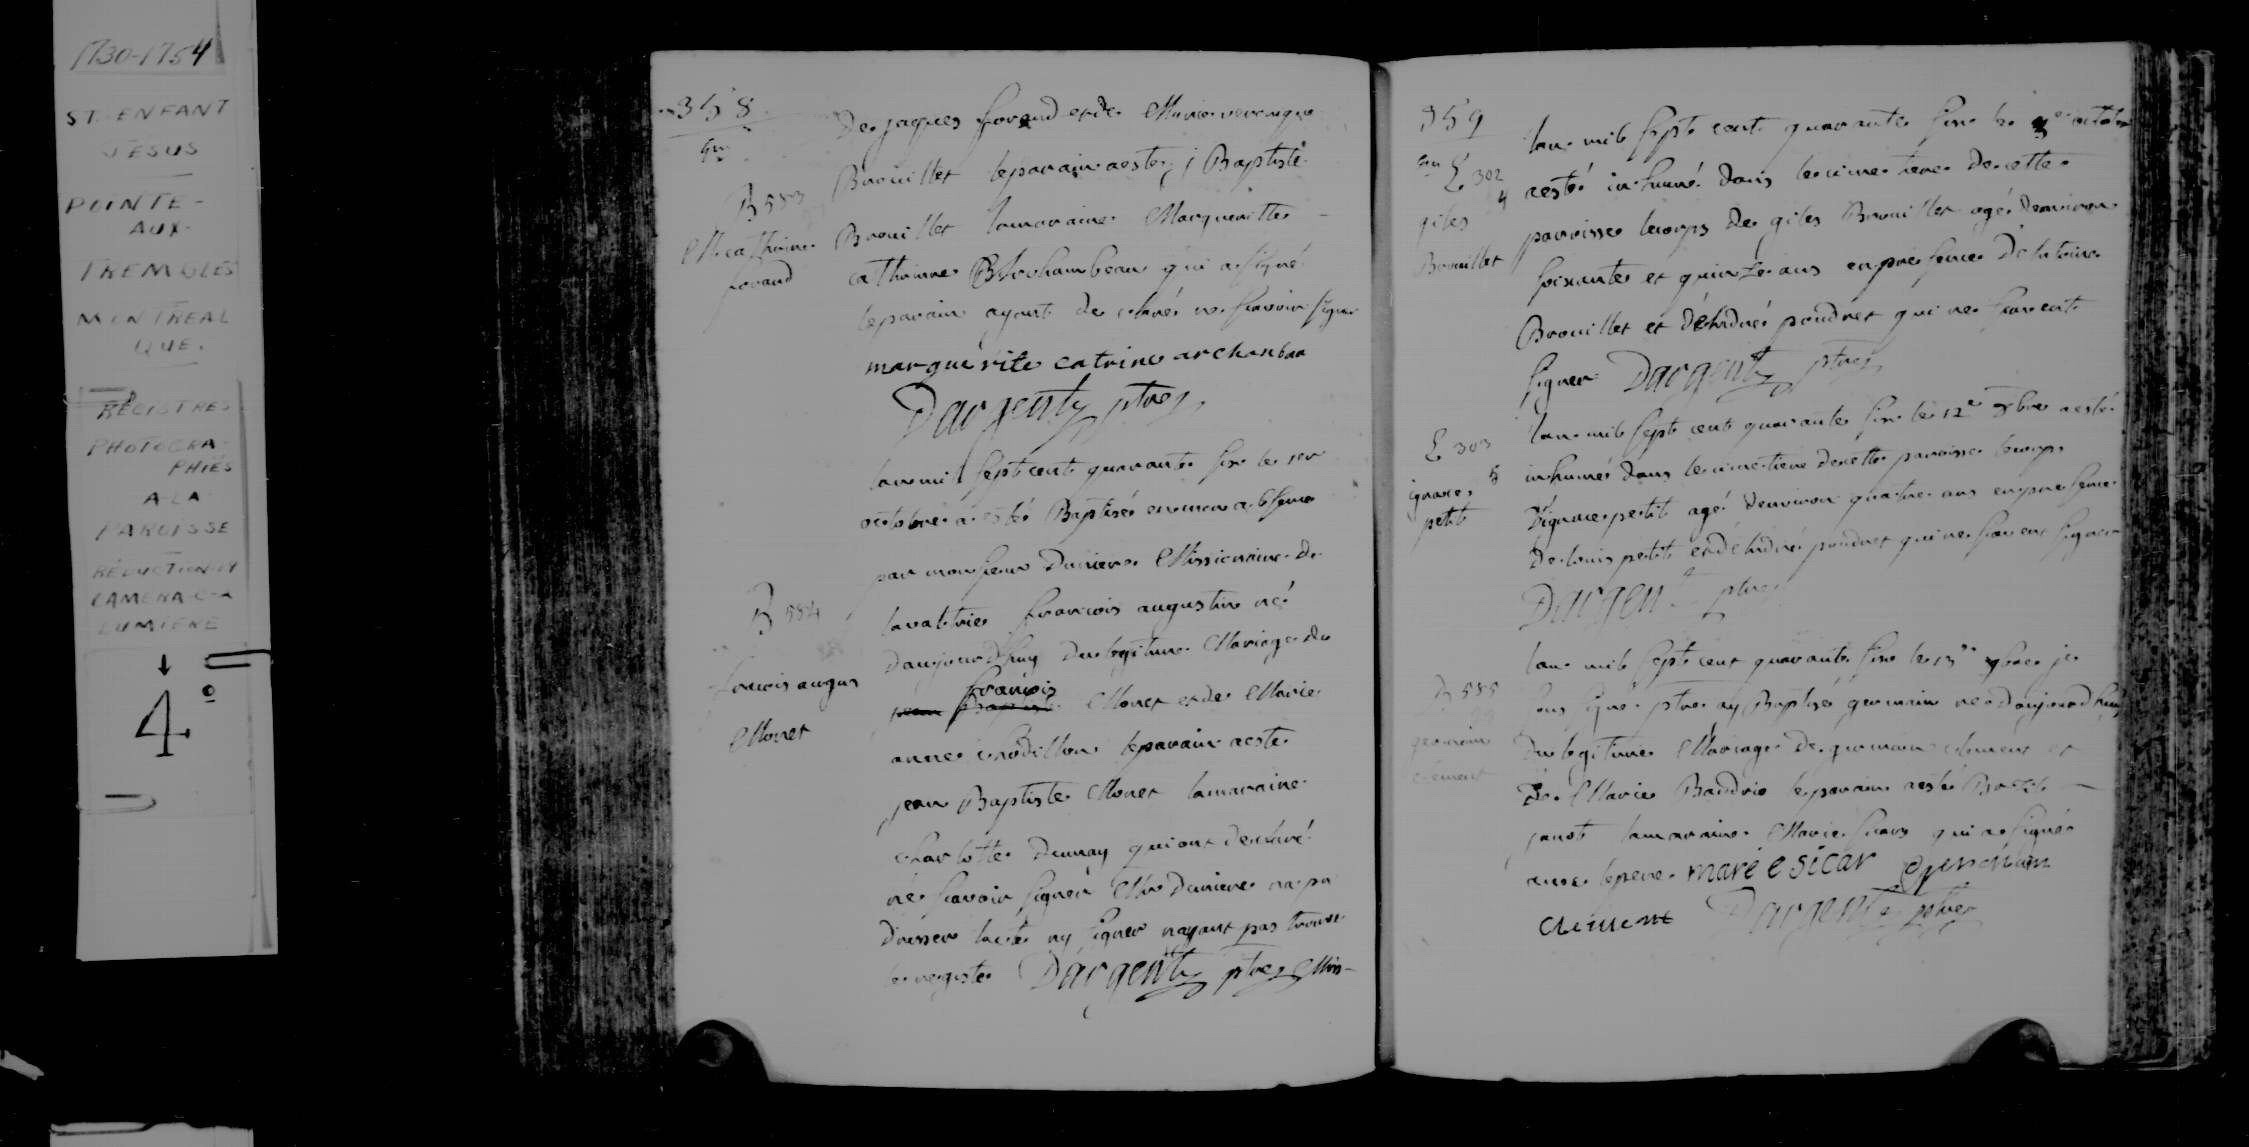 1730-1754
ST-ENFANT
JESUS
POINTE-
AUX-
TREMBLES
MONTREAL
QUE.
REGISTRES
PHOTOGRA-
PHIÉS
A LA
PAROISSE
RÉDUCTION-14
CAMERA-C-2
LUMIERE
4º
358
B 583
M. catherine
forand
De jaques forand et de Marie veronique
Brouillet le parain a este j Baptiste
Brouillet la maraine Marguerite
catherine Archambeau qui a signé
le parain ayant declaré ne scavoir signer
marguérite catrine archanbau
Dargent ptre
B 584
francois augus
Monet
lan mil sept cent quarante six le 1er
octobre a esté Baptisé en mon absence
par monsieur Duniere Missionaire de
lavaltrie francois augustin né
daujourdhuy du legitime Mariage de
francois
jean Baptiste Monet et de Marie
anne chodillon le parain a este
jean Baptiste Monet la maraine
charlotte Daunay qui ont declaré
ne scavoir signer Mr Duniere na pu
dresser lacte ny signer nayant pas trouvé
le registre Dargent ptre Miss-
359
E 302
4
giles
Brouillet
lan mil sept cent quarante six le octobre
a esté inhumé dans le cimetiere de cette
paroisse le corps de giles Brouillet agé denviron
soixante et quinze ans en presence Dantoine
Brouillet et dandré poudret qui ne scavent
signer Dargent ptre
E 303
5
ignace
petit
lan mil sept cent quarante six le 12e 8bre a esté
inhumé dans le cimetiere de cette paroisse le corps
Dignace petit agé denviron quatre ans en presence
De louis petit et dandré poudret qui ne scavent signer
Dargent ptre
B 585
germain
clement
lan mil sept cent quarante six le 13e je
sous signé ptre ay Baptisé germain né daujourdhuy
du legitime Mariage de germain clement et
De Marie Baudrio le parain a esté
janot la maraine Marie sicar qui a signé
avec le pere marie sicar
clement Dargent ptre